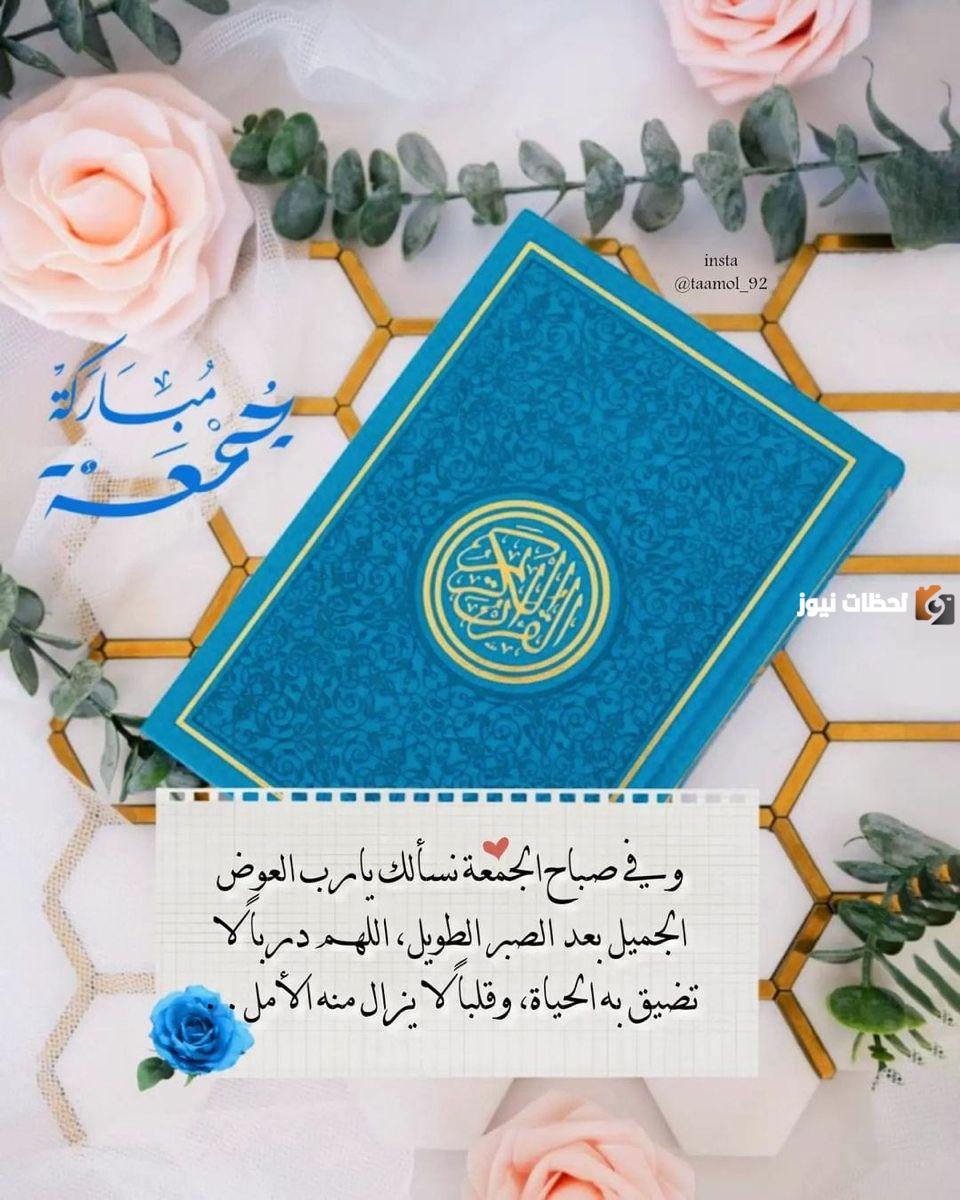 insta
@taamol_92
جُمْعَة
مُبَارَكَةْ
القرآن الكريم
لحظات نيوز
وفي صباح الجمعة نسألك يا رب العوض
الجميل بعد الصبر الطويل، اللهم درباً لا
تضيق به الحياة، وقلباً لا يزال منه الأمل . .